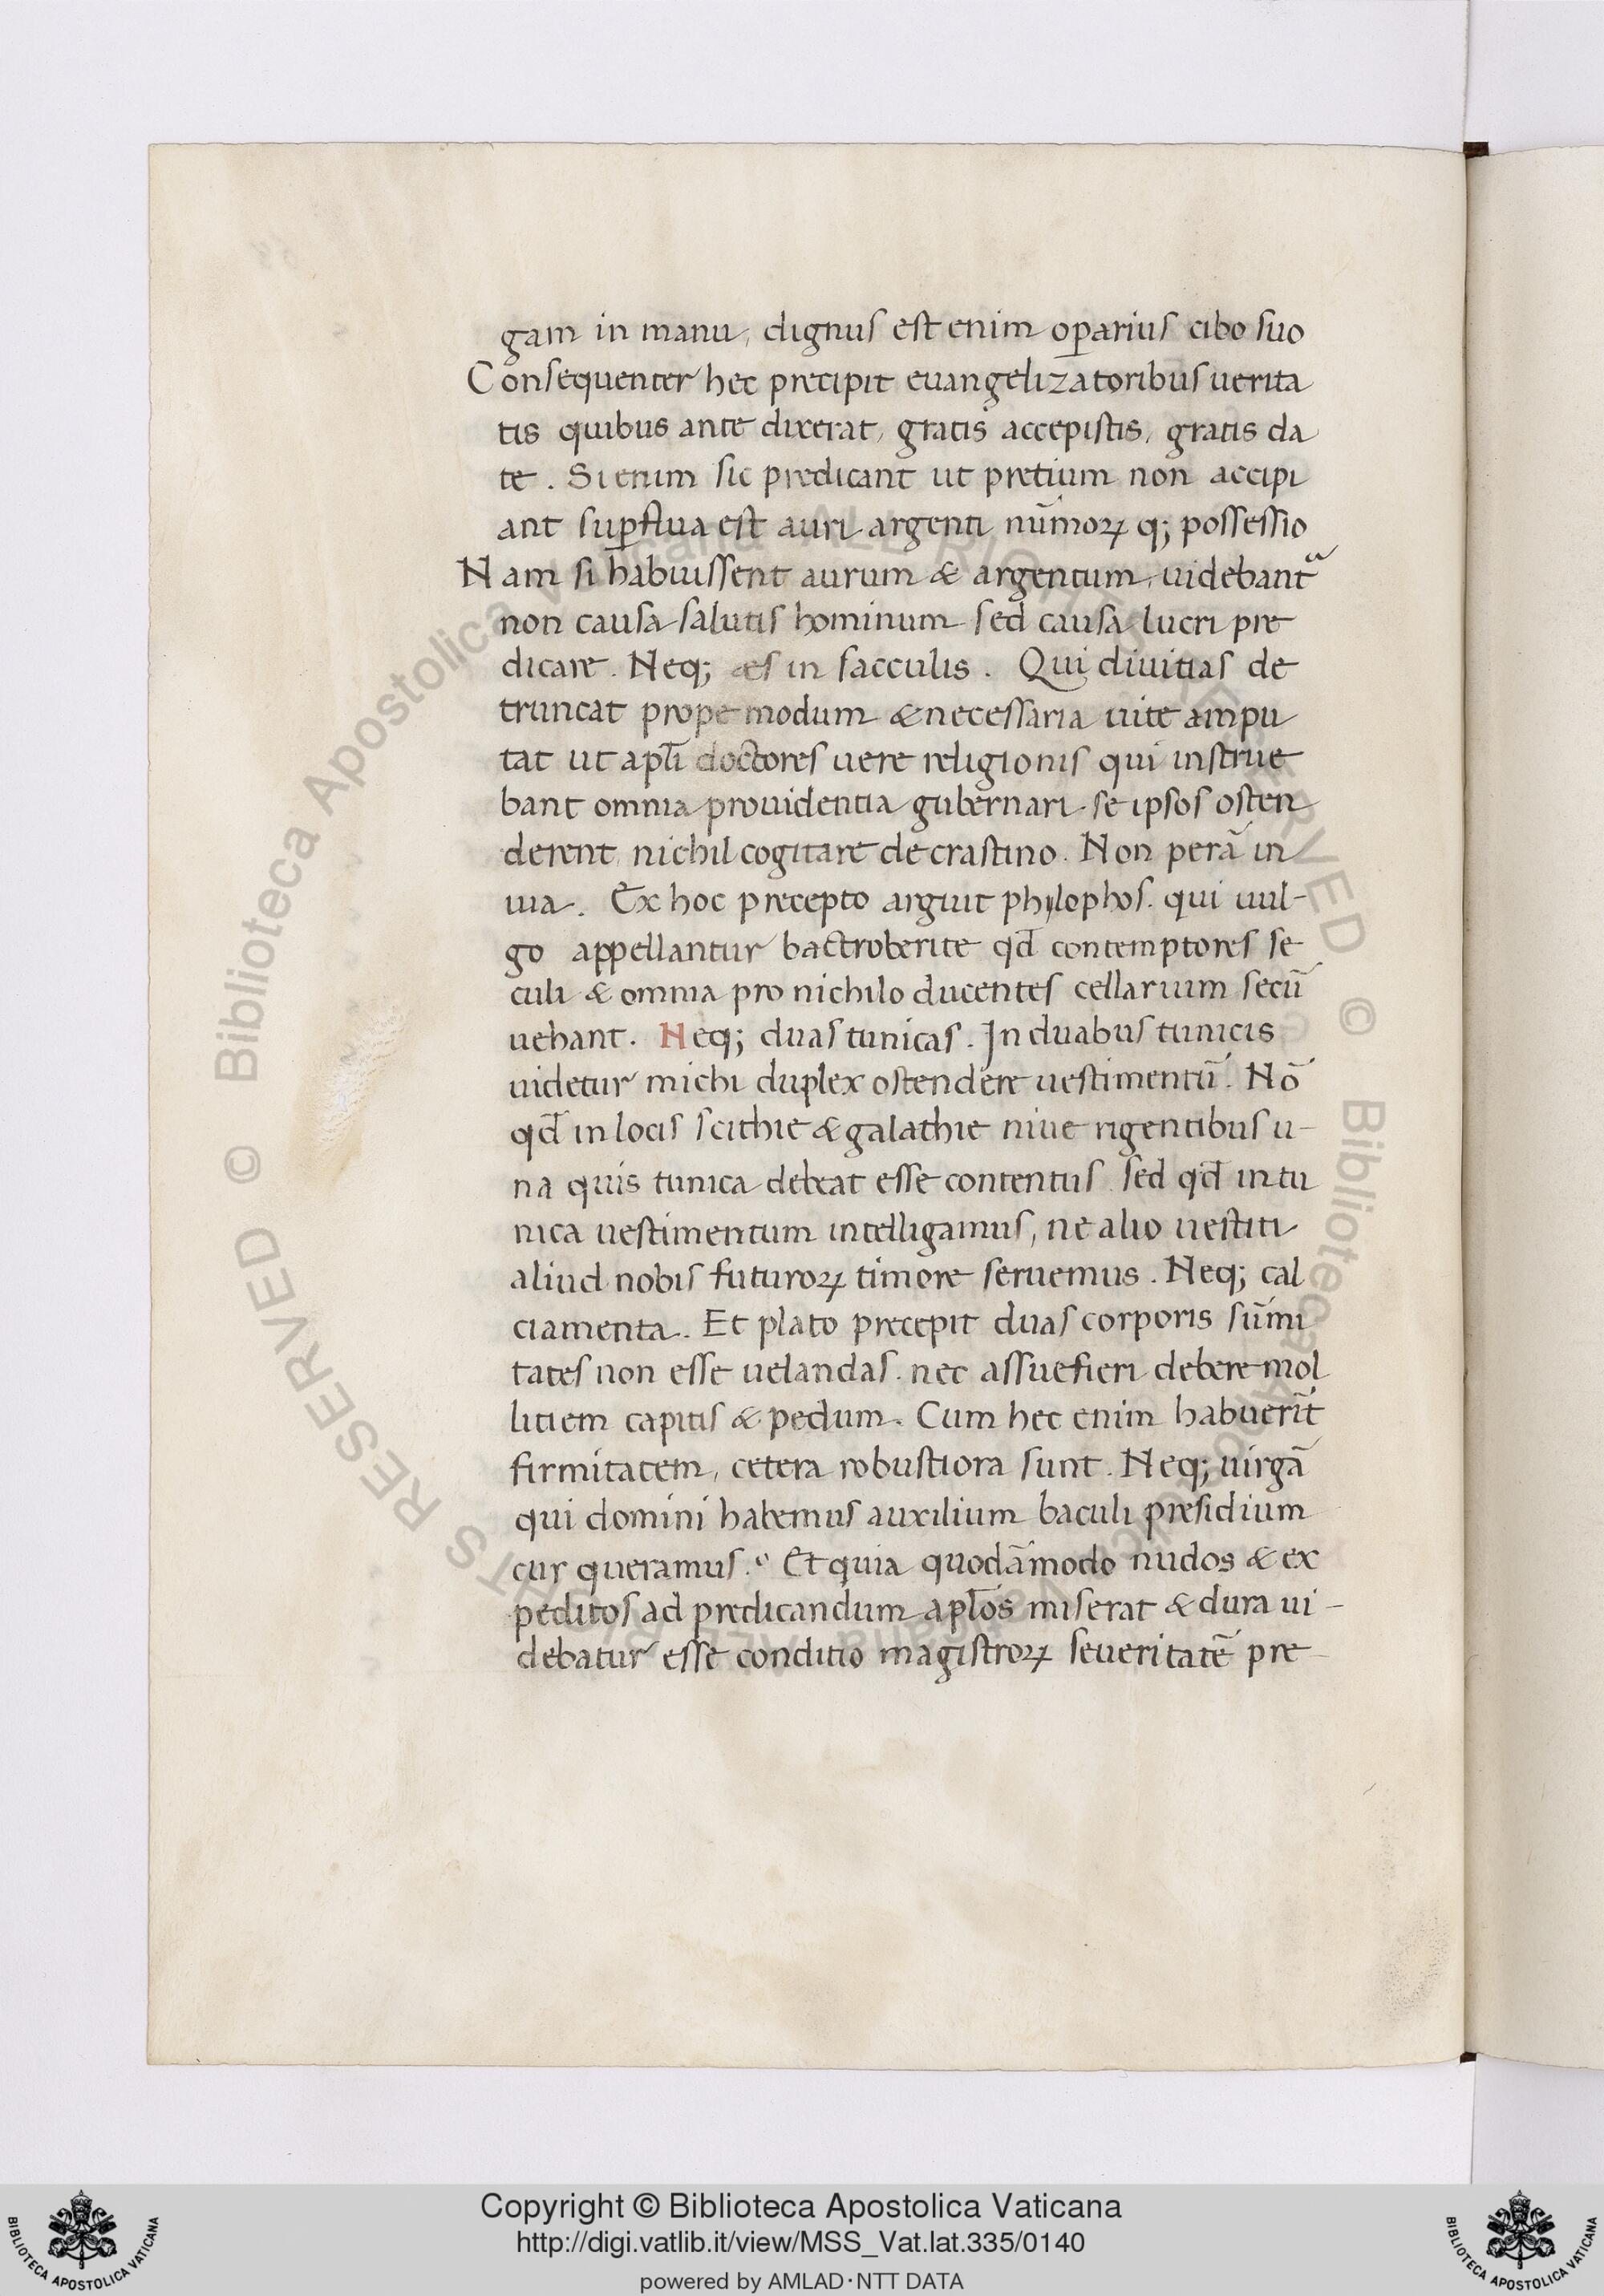 gam in manu, dignus est enim oꝑarius cibo suo
Consequenter hec precipit euangelizatoribus uerita
tis quibus ante dixerat, gratis accepistis, gratis da
te. Si enim sic predicant ut pretium non accipi
ant suꝑflua est auri argenti nūmoꝝ q; possessio
Nam si habuissent aurum & argentum, uidebantᵃ
non causa salutis hominum sed causa lucri pre
dicare. Neq; æs in sacculis. Qui diuitias de
truncat propemodum & necessaria uite ampu
tat ut apl̄i doctores uere religionis qui instrue
bant omnia prouidentia gubernari se ipsos osten
derent nichil cogitare de crastino. Non perā in
uia. Ex hoc precepto arguit phylophos. qui uul-
go appellantur bactroberite qd̄ contemptores se
culi & omnia pro nichilo ducentes cellarium secū
uehant. Neq; duas tunicas. In duabus tunicis
uidetur michi duplex ostendere uestimentū. Nō
qd̄ in locis scithie & galathie niue rigentibus u-
na quis tunica debeat esse contentus sed qd̄ in tu
nica uestimentum intelligamus, ne alio uestiti
aliud nobis futuroꝝ timore seruemus. Neq; cal
ciamenta. Et plato precepit duas corporis sūmi
tates non esse uelandas. nec assuefieri debere mol
litiem capitis & pedum. Cum hec enim habuerīt
firmitatem, cetera robustiora sunt. Neq; uirgā
qui domini habemus auxilium baculi presidium
cur queramus? Et quia quodāmodo nudos & ex
peditos ad predicandum apl̄os miserat & dura ui-
debatur esse conditio magistroꝝ seueritatē pre-
Copyright © Biblioteca Apostolica Vaticana
http://digi.vatlib.it/view/MSS_Vat.lat.335/0140
powered by AMLAD·NTT DATA
BIBLIOTECA APOSTOLICA VATICANA
BIBLIOTECA APOSTOLICA VATICANA